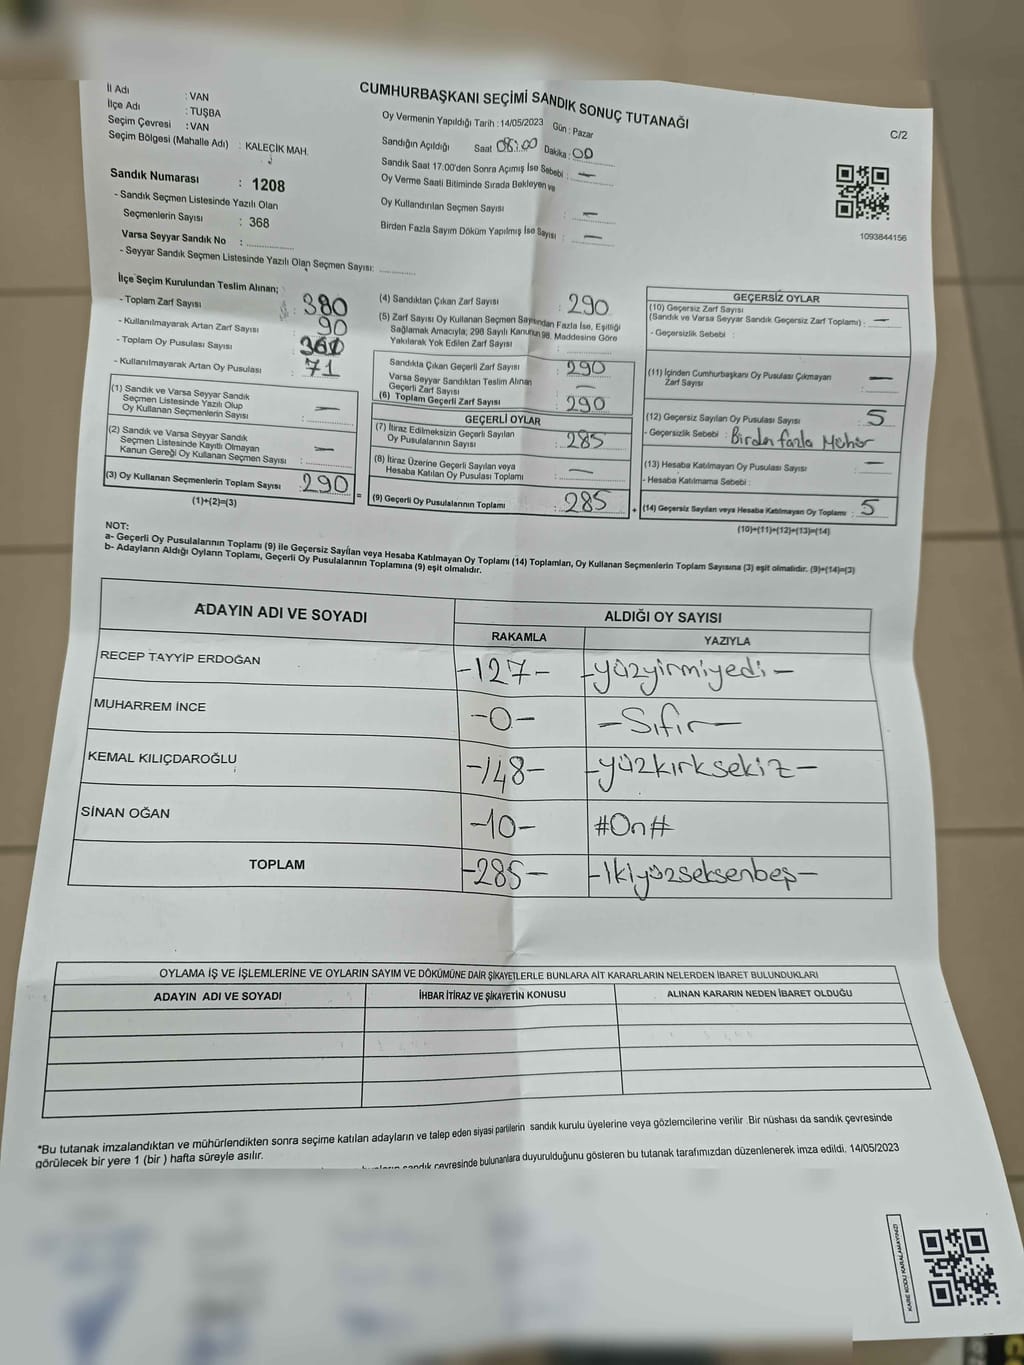 CUMHURBAŞKANI SEÇİMİ SANDIK SONUÇ TUTANAĞI
C/2
İl Adı : VAN
İlçe Adı : TUŞBA
Seçim Çevresi : VAN
Seçim Bölgesi (Mahalle Adı) : KALEÇİK MAH.
Sandık Numarası : 1208
- Sandık Seçmen Listesinde Yazılı Olan
Seçmenlerin Sayısı : 368
Varsa Seyyar Sandık No :
- Seyyar Sandık Seçmen Listesinde Yazılı Olan Seçmen Sayısı:
Oy Vermenin Yapıldığı Tarih : 14/05/2023 Gün : Pazar
Sandığın Açıldığı Saat 08:00 Dakika : 00
Sandık Saat 17:00'den Sonra Açımış İse Sebebi : —
Oy Verme Saati Bitiminde Sırada Bekleyen ve
Oy Kullandırılan Seçmen Sayısı : —
Birden Fazla Sayım Döküm Yapılmış İse Sayısı : —
1093844156
İlçe Seçim Kurulundan Teslim Alınan;
- Toplam Zarf Sayısı : 380
- Kullanılmayarak Artan Zarf Sayısı : 90
- Toplam Oy Pusulası Sayısı :
- Kullanılmayarak Artan Oy Pusulası : 71
(1) Sandık ve Varsa Seyyar Sandık
Seçmen Listesinde Yazılı Olup
Oy Kullanan Seçmenlerin Sayısı : —
(2) Sandık ve Varsa Seyyar Sandık
Seçmen Listesinde Kayıtlı Olmayan
Kanun Gereği Oy Kullanan Seçmen Sayısı : —
(3) Oy Kullanan Seçmenlerin Toplam Sayısı : 290
(1)+(2)=(3)
(4) Sandıktan Çıkan Zarf Sayısı : 290
(5) Zarf Sayısı Oy Kullanan Seçmen Sayısından Fazla İse, Eşitliği
Sağlamak Amacıyla; 298 Sayılı Kanunun 98. Maddesine Göre
Yakılarak Yok Edilen Zarf Sayısı :
Sandıkta Çıkan Geçerli Zarf Sayısı : 290
Varsa Seyyar Sandıktan Teslim Alınan
Geçerli Zarf Sayısı : —
(6) Toplam Geçerli Zarf Sayısı : 290
GEÇERLİ OYLAR
(7) İtiraz Edilmeksizin Geçerli Sayılan
Oy Pusulalarının Sayısı : 285
(8) İtiraz Üzerine Geçerli Sayılan veya
Hesaba Katılan Oy Pusulası Toplamı : —
(9) Geçerli Oy Pusulalarının Toplamı : 285
GEÇERSİZ OYLAR
(10) Geçersiz Zarf Sayısı
(Sandık ve Varsa Seyyar Sandık Geçersiz Zarf Toplamı) : —
- Geçersizlik Sebebi :
(11) İçinden Cumhurbaşkanı Oy Pusulası Çıkmayan
Zarf Sayısı : —
(12) Geçersiz Sayılan Oy Pusulası Sayısı : 5
- Geçersizlik Sebebi : Birden fazla Mühür
(13) Hesaba Katılmayan Oy Pusulası Sayısı : —
- Hesaba Katılmama Sebebi :
(14) Geçersiz Sayılan veya Hesaba Katılmayan Oy Toplamı : 5
(10)+(11)+(12)+(13)=(14)
NOT:
a- Geçerli Oy Pusulalarının Toplamı (9) ile Geçersiz Sayılan veya Hesaba Katılmayan Oy Toplamı (14) Toplamları, Oy Kullanan Seçmenlerin Toplam Sayısına (3) eşit olmalıdır. (9)+(14)=(3)
b- Adayların Aldığı Oyların Toplamı, Geçerli Oy Pusulalarının Toplamına (9) eşit olmalıdır.
ADAYIN ADI VE SOYADI ALDIĞI OY SAYISI
RAKAMLA YAZIYLA
RECEP TAYYİP ERDOĞAN -127- -yüzyirmiyedi-
MUHARREM İNCE -0- -Sıfır-
KEMAL KILIÇDAROĞLU -148- -yüzkırksekiz-
SİNAN OĞAN -10- #On#
TOPLAM -285- -İkiyüzseksenbeş-
OYLAMA İŞ VE İŞLEMLERİNE VE OYLARIN SAYIM VE DÖKÜMÜNE DAİR ŞİKAYETLERLE BUNLARA AİT KARARLARIN NELERDEN İBARET BULUNDUKLARI
ADAYIN ADI VE SOYADI İHBAR İTİRAZ VE ŞİKAYETİN KONUSU ALINAN KARARIN NEDEN İBARET OLDUĞU
*Bu tutanak imzalandıktan ve mühürlendikten sonra seçime katılan adayların ve talep eden siyasi partilerin sandık kurulu üyelerine veya gözlemcilerine verilir. Bir nüshası da sandık çevresinde
görülecek bir yere 1 (bir ) hafta süreyle asılır.
sandık çevresinde bulunanlara duyurulduğunu gösteren bu tutanak tarafımızdan düzenlenerek imza edildi. 14/05/2023
KARE KODU KARALAMAYINIZ!